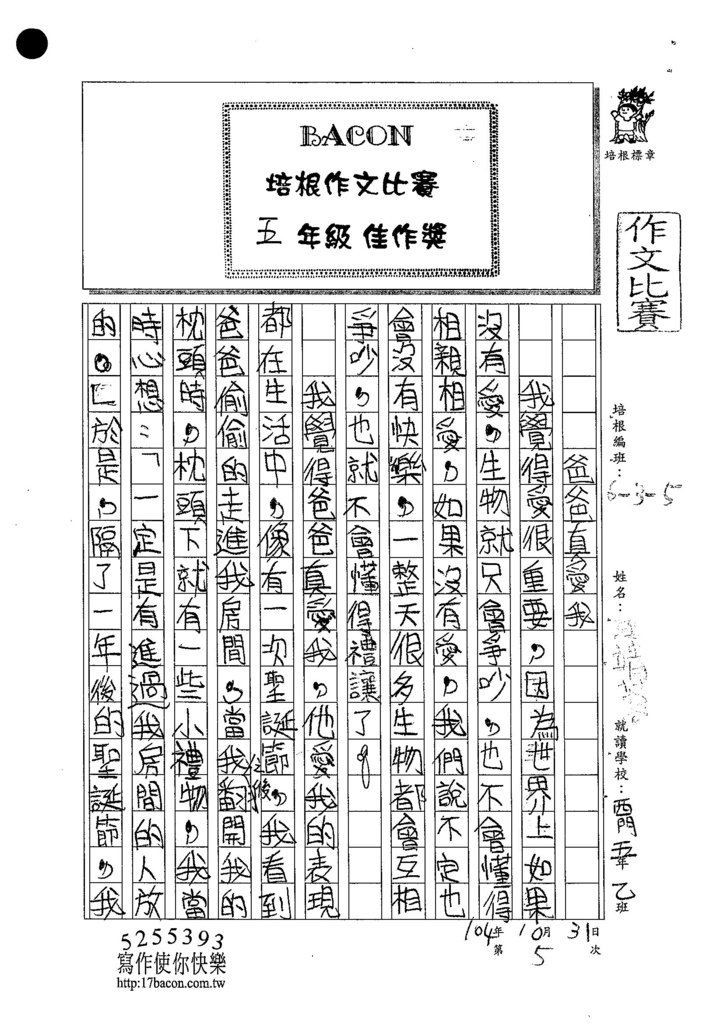 BACON
培根作文比賽
五年級佳作獎
培根標章
作文比賽
培根編班：6-3-5
姓名：
就讀學校：西門 五年 乙班
爸爸真愛我
我覺得愛很重要，因為世界上如果
沒有愛，生物就只會爭吵，也不會懂得
相親相愛，如果沒有愛，我們說不定也
會沒有快樂，一整天很多生物都會互相
爭吵，也就不會懂得禮讓了。
我覺得爸爸真愛我，他愛我的表現
都在生活中，像有一次聖誕節之後，我看到
爸爸偷偷的走進我房間，當我翻開我的
枕頭時，枕頭下就有一些小禮物，我當
時心想：「一定是有進過我房間的人放
的。」於是，隔了一年後的聖誕節，我
104年 10月 31日
第 5 次
5255393
寫作使你快樂
http:17bacon.com.tw